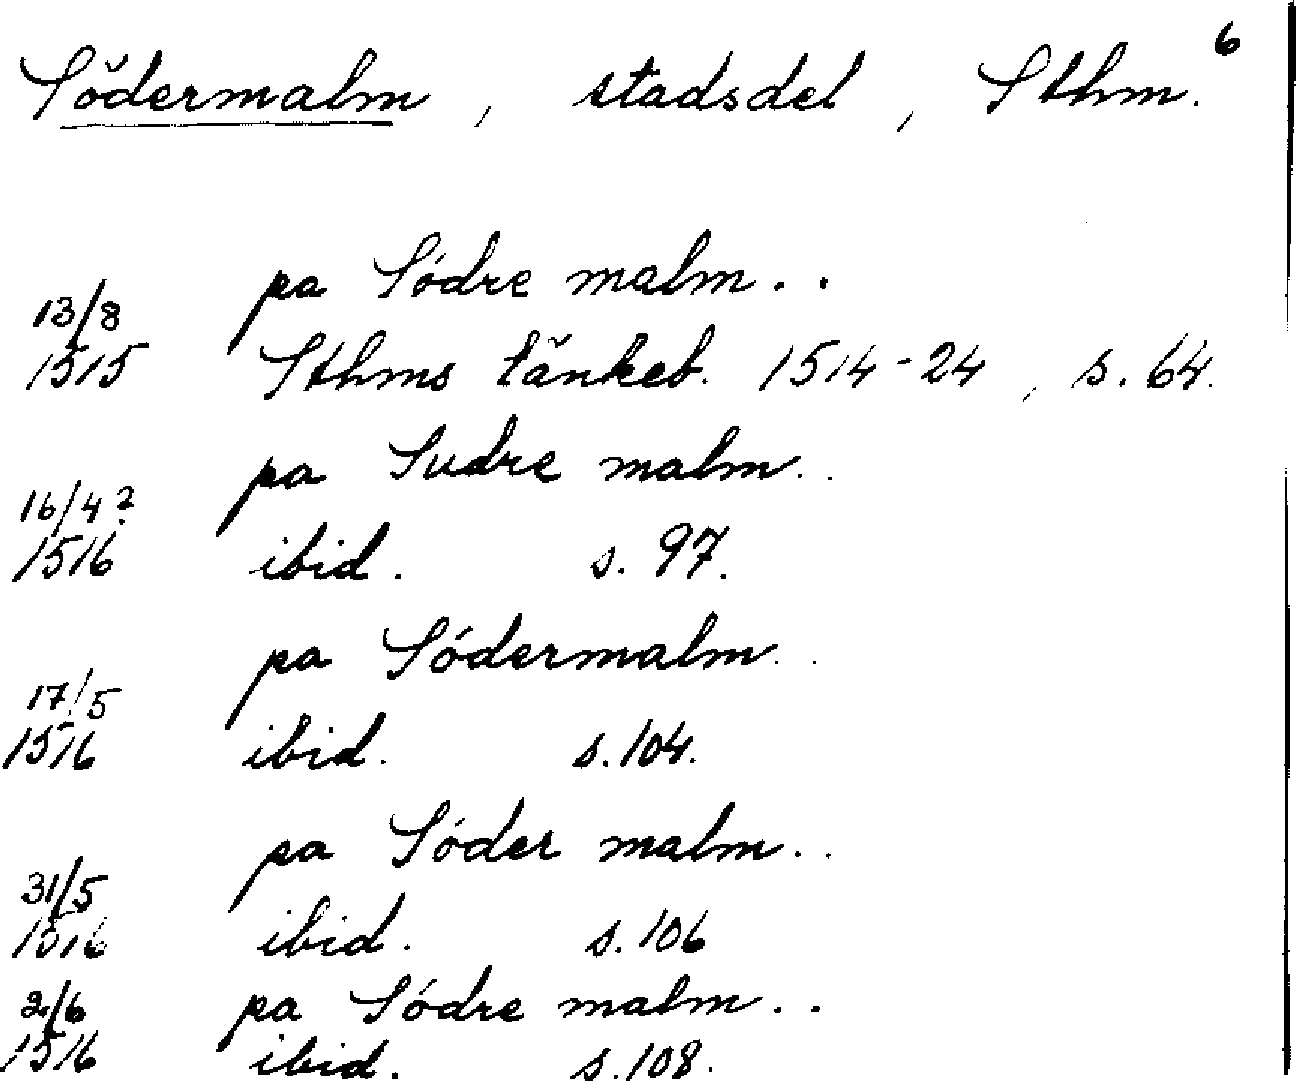 6
Södermalm, stadsdel, Sthm.
pa Södre malm..
13/8
1515 Sthms tänkeb. 1514-24, s. 64.
pa Sudre malm..
16/4?
1516 ibid. s. 97.
pa Södermalm..
17/5
1516 ibid. s. 104.
pa Söder malm..
31/5
1516 ibid. s. 106
2/6 pa Södre malm..
1516 ibid. s. 108.